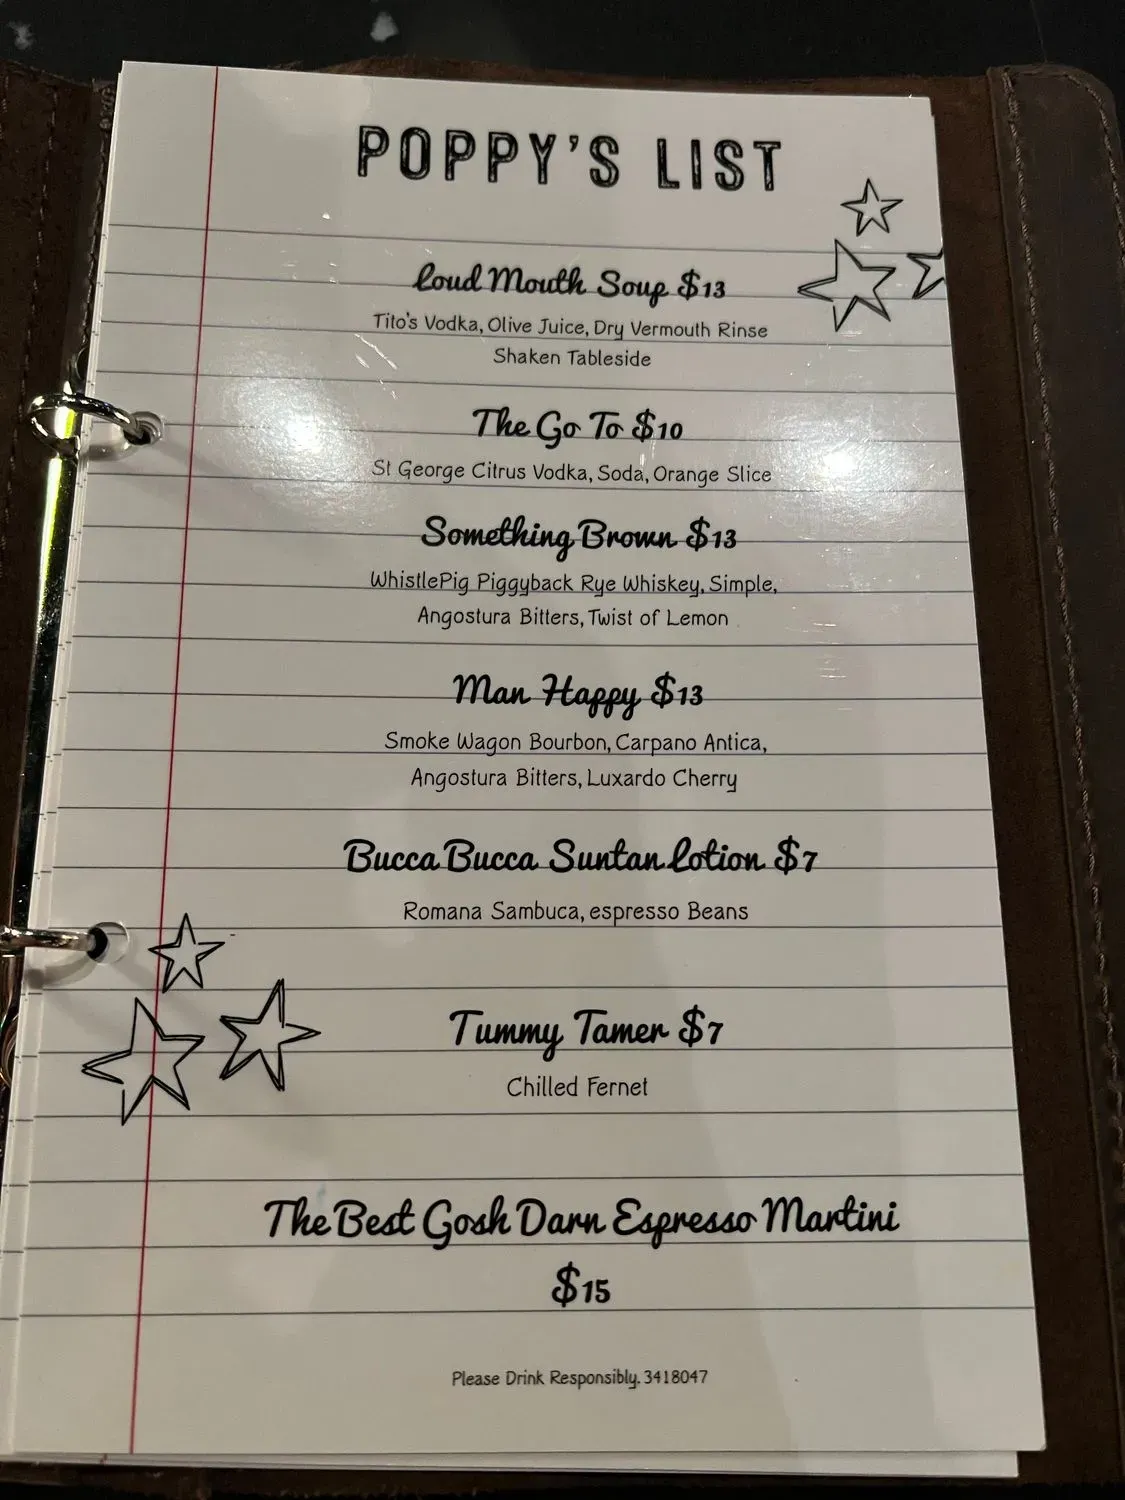 POPPY'S LIST
Loud Mouth Soup $13
Tito's Vodka, Olive Juice, Dry Vermouth Rinse
Shaken Tableside
The Go To $10
St George Citrus Vodka, Soda, Orange Slice
Something Brown $13
WhistlePig Piggyback Rye Whiskey, Simple,
Angostura Bitters, Twist of Lemon
Man Happy $13
Smoke Wagon Bourbon, Carpano Antica,
Angostura Bitters, Luxardo Cherry
Bucca Bucca Suntan Lotion $7
Romana Sambuca, espresso Beans
Tummy Tamer $7
Chilled Fernet
The Best Gosh Darn Espresso Martini
$15
Please Drink Responsibly. 3418047